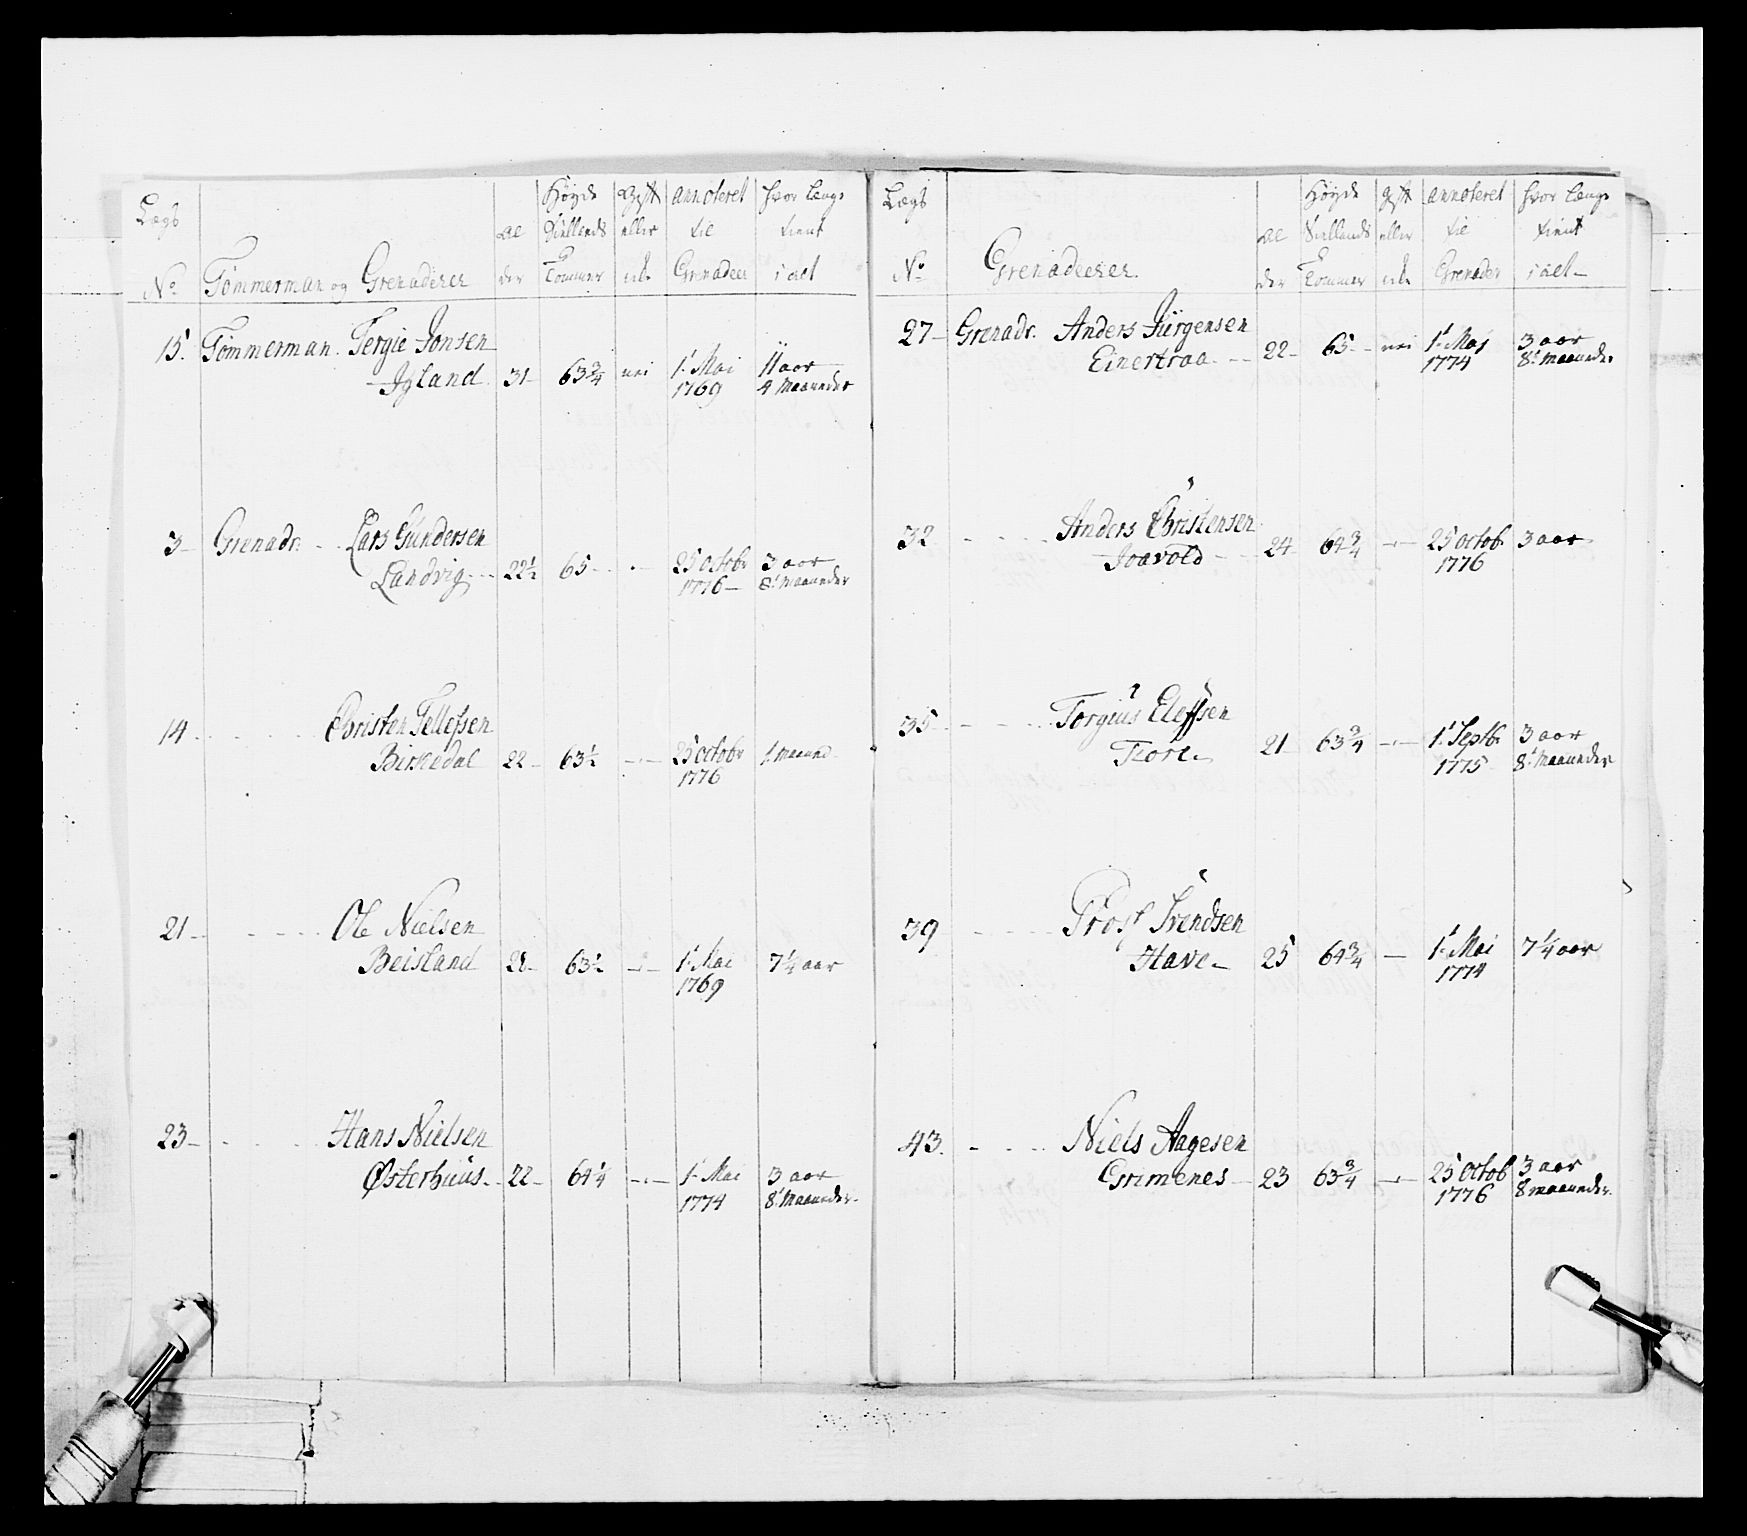 Lægs
No
Tømmerman og Grenaderer
Al
der
Høyde
Siellands
Tommer
Gift
eller
annoteret
til
Grenadeer
hvor længe
tient
i alt
15. Tømmerman. Tergie Jonsen
Igland 31 63 3/4 nei 1. Mai 11 aar
1769 4 Maaneder
3 Grenadr. Lars Gundersen
Landvig 22 1/2 65 25 octobr 3 aar
1776 8 Maaneder
14 Christen Tellefsen
Birkedal 22 63 1/2 25 octobr 1 maaned
1776
21 Ole Nielsen
Beisland 28 63 1/2 1. Mai 7 1/4 aar
1769
23 Hans Nielsen
Østerhuus 22 64 1/4 1. Mai 3 aar
1774 8 Maaneder
Lægs
No
Grenadeerer.
Al
der
Høyde
Siellands
Tommer
gift
eller
annoteret
til
Grenader
hvor længe
tient
i alt
27 Grenadr. Anders Jürgensen
Einertraa 22 65 nei 1. Maj 3 aar
1774 8 maaneder
32 Anders Christensen
Joavold 24 64 3/4 25 octob. 3 aar
1776
35 Torgius Eleffsen
Fiore 21 63 3/4 1. Septb. 3 aar
1775 8 Maaneder
39 Trost Svendsen
Have 25 64 3/4 1. Mai 7 1/4 aar
1774
43. Niels Aagesen
Grimenes 23 63 3/4 25 octob 3 aar
1776 8 maaneder